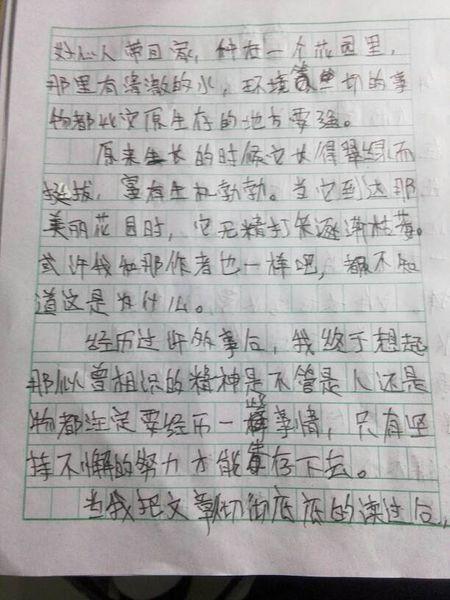 好心人带回家，种在一个花园里，
那里有清澈的水，环境一切的事
物都比它原生存的地方要强。
原来生长的时候它长得翠绿而
挺拔，富有生机勃勃。当它到达那
美丽花园时，它无精打采逐渐枯萎。
或许我和那作者也一样吧，都不知
道这是为什么。
经历过许多事后，我终于想起
那似曾相识的精神是不管是人还是
物都注定要经历一些事情，只有坚
持不懈的努力才能存下去。
当我把文章彻彻底底的读过后，